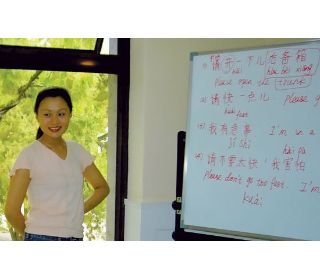 请开一下儿后备箱
kāi hòu bèi xiāng
Please open the trunk
(2) 请快一点儿 please g
kuài
fast
(3) 我有急事 I'm in a
jí shì hài pà
(4) 请不要太快！我害怕
please don't go too fast. I'm
kuài